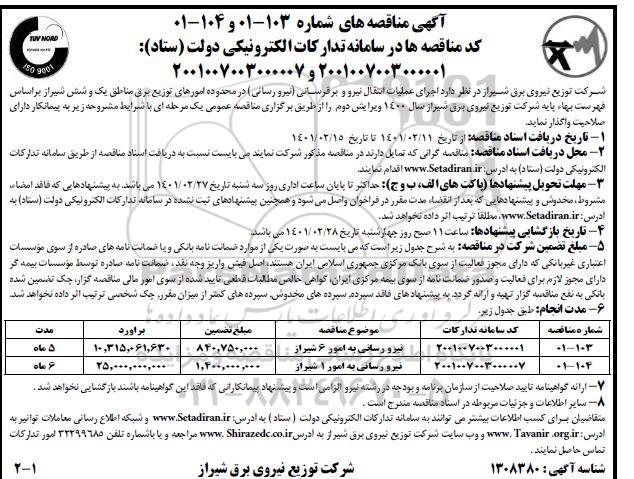 آگهی مناقصه های شماره ۱۰۳-۰۱ و ۱۰۴-۰۱
کد مناقصه ها در سامانه تدارکات الکترونیکی دولت (ستاد):
۲۰۰۱۰۰۷۰۰۳۰۰۰۰۰۱ و ۲۰۰۱۰۰۷۰۰۳۰۰۰۰۰۷
TUV NORD
ISO 9001
شرکت توزیع نیروی برق شیراز در نظر دارد اجرای عملیات انتقال نیرو و برقرسانی (نیرو رسانی) در محدوده امورهای توزیع برق مناطق یک و شش شیراز براساس
فهرست بهاء پایه شرکت توزیع نیروی برق شیراز سال ۱۴۰۰ ویرایش دوم را از طریق برگزاری مناقصه عمومی یک مرحله ای با شرایط مشروحه زیر به پیمانکار دارای
صلاحیت واگذار نماید.
۱- تاریخ دریافت اسناد مناقصه: از تاریخ ۱۴۰۱/۰۲/۱۱ تا تاریخ ۱۴۰۱/۰۲/۱۵
۲- محل دریافت اسناد مناقصه: مناقصه گرانی که تمایل دارند در مناقصه مذکور شرکت نمایند می بایست نسبت به دریافت اسناد مناقصه از طریق سامانه تدارکات
الکترونیکی دولت (ستاد) به آدرس: www.Setadiran.ir اقدام نمایند.
۳- مهلت تحویل پیشنهادها (پاکت های الف، ب و ج): حداکثر تا پایان ساعت اداری روز سه شنبه تاریخ ۱۴۰۱/۰۲/۲۷ می باشد. به پیشنهادهایی که فاقد امضاء،
مشروط، مخدوش و پیشنهادهایی که بعد از انقضاء مدت مقرر در فراخوان واصل می شود و همچنین پیشنهادهای ثبت نشده در سامانه تدارکات الکترونیکی دولت (ستاد) به
آدرس: www.Setadiran.ir، مطلقا ترتیب اثر داده نخواهد شد.
۴- تاریخ بازگشایی پیشنهادها: ساعت ۱۱ صبح روز چهارشنبه تاریخ ۱۴۰۱/۰۲/۲۸ می باشد.
۵- مبلغ تضمین شرکت در مناقصه: به شرح جدول زیر است که می بایست به صورت یکی از موارد ضمانت نامه بانکی و یا ضمانت نامه های صادره از سوی مؤسسات
اعتباری غیربانکی که دارای مجوز فعالیت از سوی بانک مرکزی جمهوری اسلامی ایران هستند، اصل فیش واریز وجه نقد، ضمانت نامه صادره توسط مؤسسات بیمه گر
دارای مجوز لازم برای فعالیت و صدور ضمانت نامه از سوی بیمه مرکزی ایران، گواهی خالص مطالبات قطعی تایید شده از سوی امور مالی مناقصه گزار، چک تضمین شده
بانکی به نفع مناقصه گزار تهیه و ارائه گردد. به پیشنهاد های فاقد سپرده، سپرده های مخدوش، سپرده های کمتر از میزان مقرر، چک شخصی ترتیب اثر داده نخواهد شد.
۶- مدت انجام: طبق جدول زیر.
شماره مناقصه کد سامانه تدارکات موضوع مناقصه مبلغ تضمین برآورد مدت
۰۱-۱۰۳ ۲۰۰۱۰۰۷۰۰۳۰۰۰۰۰۱ نیرو رسانی به امور ۶ شیراز ۸۴۰,۷۵۰,۰۰۰ ۱۰,۳۱۵,۰۶۱,۶۳۰ ۵ ماه
۰۱-۱۰۴ ۲۰۰۱۰۰۷۰۰۳۰۰۰۰۰۷ نیرو رسانی به امور ۱ شیراز ۱,۴۰۰,۰۰۰,۰۰۰ ۲۵,۰۰۰,۰۰۰,۰۰۰ ۶ ماه
۷- ارائه گواهینامه تایید صلاحیت از سازمان برنامه و بودجه در رشته نیرو الزامی است و پیشنهاد پیمانکارانی که فاقد این گواهینامه باشند بازگشایی نخواهد شد.
۸- سایر اطلاعات و جزئیات مربوطه در اسناد مناقصه مندرج است.
متقاضیان برای کسب اطلاعات بیشتر می توانند به سامانه تدارکات الکترونیکی دولت (ستاد) به آدرس: www.Setadiran.ir و شبکه اطلاع رسانی معاملات توانیر به
آدرس: www.Tavanir.org.ir و وب سایت شرکت توزیع نیروی برق شیراز به آدرس www.Shirazedc.co.ir مراجعه و یا باشماره تلفن ۳۲۲۹۹۶۸۵ امور تدارکات
تماس حاصل نمایند.
شناسه آگهی: ۱۳۰۸۳۸۰ شرکت توزیع نیروی برق شیراز ۲-۱